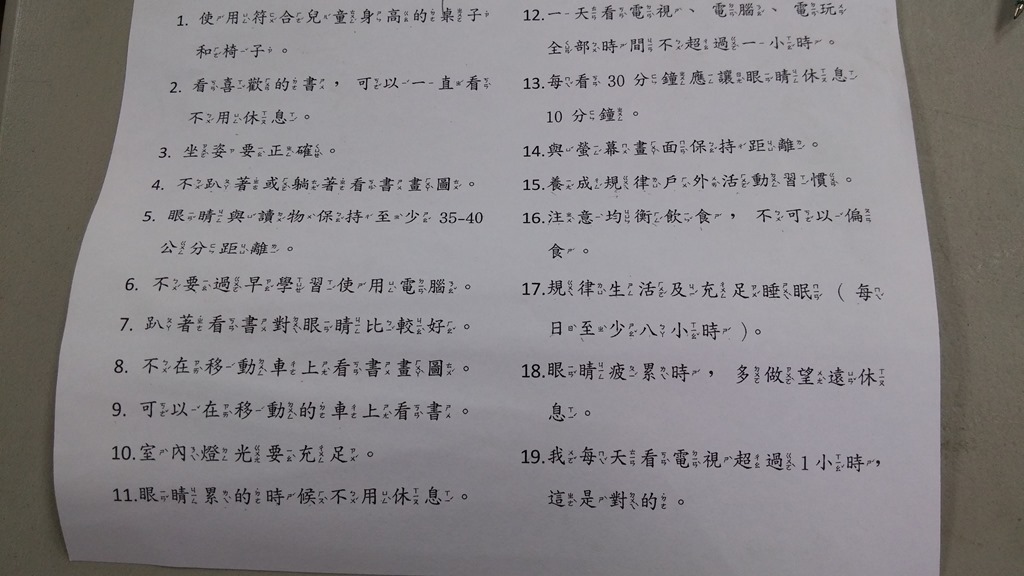 1. 使用符合兒童身高的桌子
和椅子。
2. 看喜歡的書，可以一直看
不用休息。
3. 坐姿要正確。
4. 不趴著或躺著看書畫圖。
5. 眼睛與讀物保持至少 35-40
公分距離。
6. 不要過早學習使用電腦。
7. 趴著看書對眼睛比較好。
8. 不在移動車上看書畫圖。
9. 可以在移動的車上看書。
10.室內燈光要充足。
11.眼睛累的時候不用休息。
12.一天看電視、電腦、電玩
全部時間不超過一小時。
13.每看 30 分鐘應讓眼睛休息
10 分鐘。
14.與螢幕畫面保持距離。
15.養成規律戶外活動習慣。
16.注意均衡飲食，不可以偏
食。
17.規律生活及充足睡眠（每
日至少八小時）。
18.眼睛疲累時，多做望遠休
息。
19.我每天看電視超過 1 小時，
這是對的。